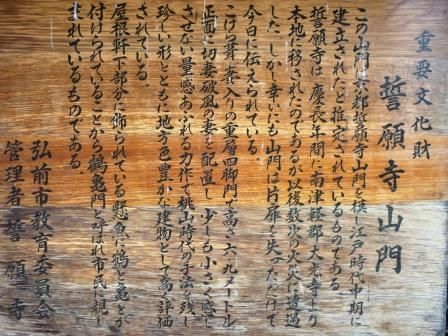 重要文化財
誓願寺山門
この山門は京都誓願寺山門を模し江戸時代中期に
建立されたと推定されているものである。
誓願寺は、慶長年間に南津軽郡大光寺より
本地に移されたのであるが以後数次の火災に遭遇
した。しかし幸いにも山門は片扉を失っただけで
今日に伝えられている。
こけら葺妻入りの重層四脚門で高さ六、九メートル
正面に切妻破風の妻を配置し、少しも小さく感じ
させない量感あふれる力作で桃山時代の手法を残し
珍しい形とともに地方色豊かな建物として高く評価
されている。
屋根軒下部分に飾られている懸魚に鶴と亀とが
付けられていることから鶴亀門と呼ばれ市民に親し
まれているものである。
弘前市教育委員会
管理者 誓願寺